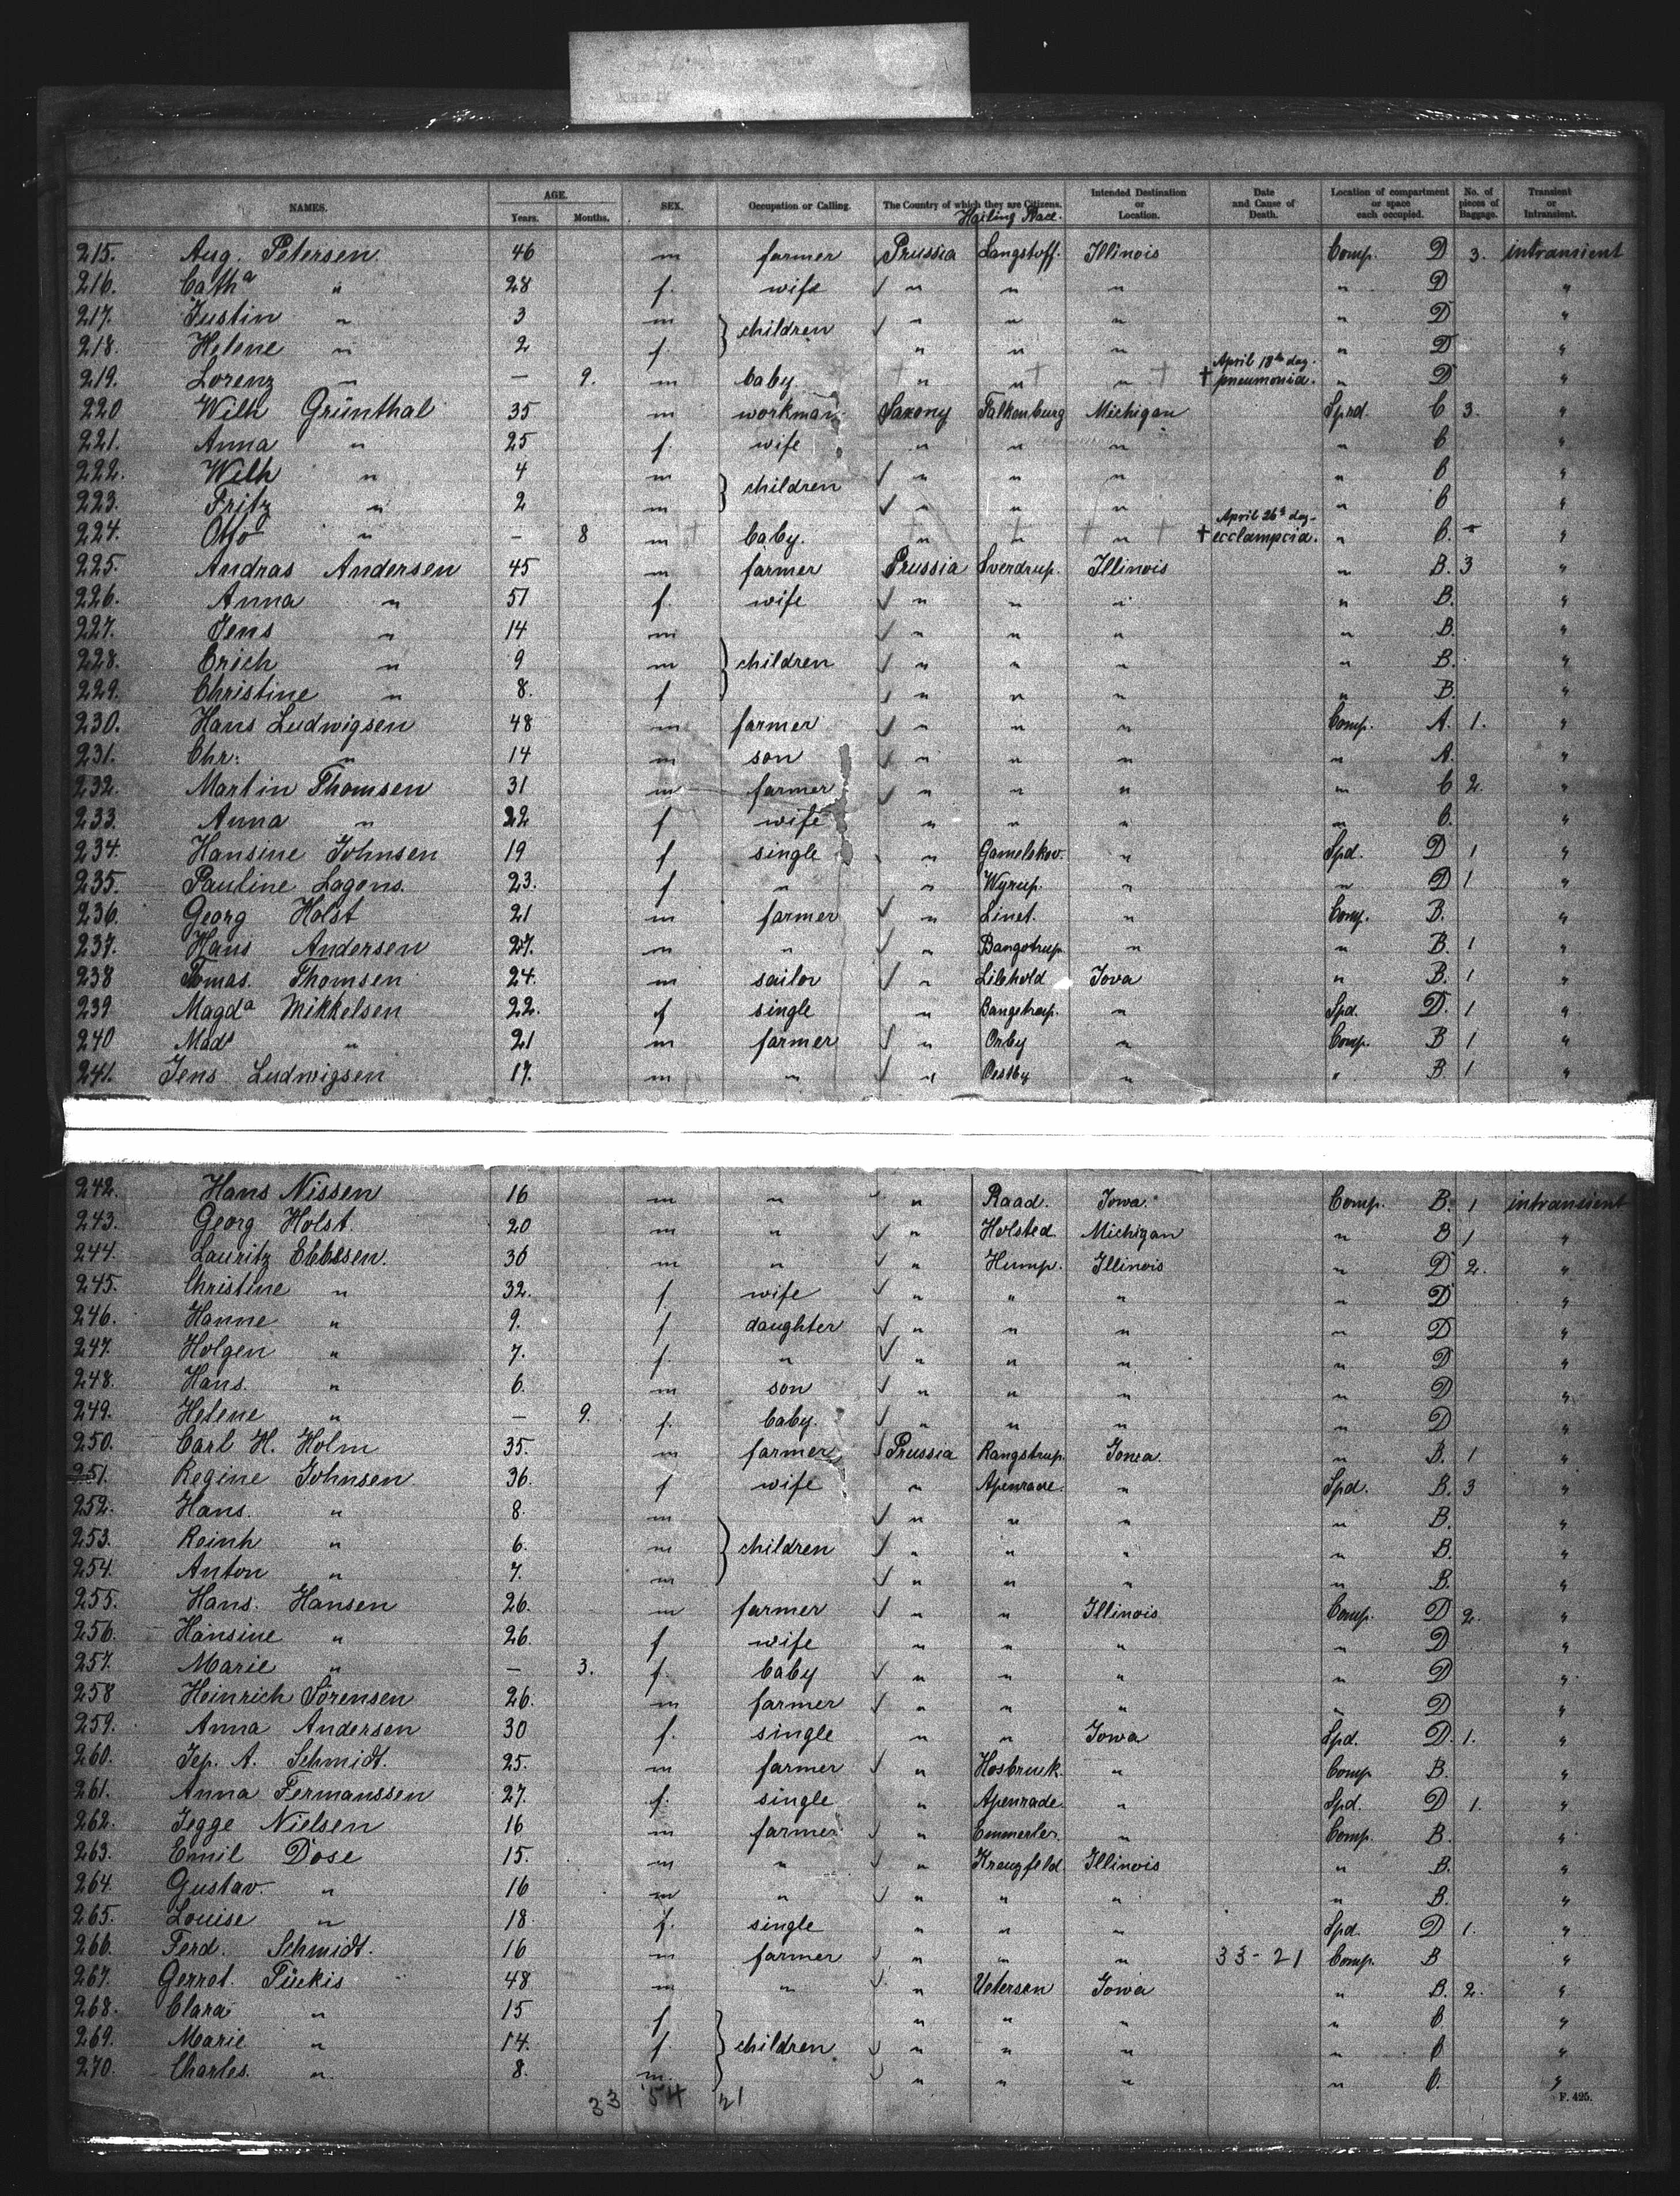 NAMES. AGE. Years. Months. SEX. Occupation or Calling. The Country of which they are Citizens. Hailing Place. Intended Destination or Location. Date and Cause of Death. Location of compartment or space each occupied. No. of pieces of Baggage. Transient or Intransient.
215. Aug. Petersen 46 m farmer Prussia Langstoff. Illinois Comp. D 3. intransient
216. Catha " 28 f. wife " " " " D "
217. Justin " 3 m children " " " " D "
218. Helene " 2 f. " " " " D "
219. Lorenz " — 9. m baby. " " " † April 18th day. pneumonia. " D "
220 Wilh Grünthal 35 m workman Saxony Falkenburg Michigan Sprd. C 3. "
221. Anna " 25 f. wife " " " " C "
222. Wilh " 4 m children " " " " C "
223. Fritz " 2 m " " " " C "
224. Otto " - 8 m baby. " " " † April 26th day. ecclampcia. " C. - "
225. Andras Andersen 45 m farmer Prussia Sverdrup. Illinois " B. 3 "
226. Anna " 51 f. wife " " " " B. "
227. Jens " 14 m " " " " B. "
228. Erich " 9 m children " " " " B. "
229. Christine " 8. f " " " " B. "
230. Hans Ludwigsen 48 m farmer " " " Comp. A. 1. "
231. Chr: " 14 m son " " " " A. "
232. Martin Thomsen 31 m farmer " " " " C 2. "
233. Anna " 22 f wife " " " " C. "
234. Hansine Johnsen 19 f single " Gamelskov. " Spd. D 1 "
235. Pauline Lagons. 23. f. " " Wyrup. " " D 1 "
236. Georg Holst 21 m farmer " Linet. " Comp. B. "
237. Hans Andersen 27. m " " Bangotrup " " B. 1 "
238 Tomas. Thomsen 24. m sailor " Libhold Iova " B. 1 "
239 Magda Mikkelsen 22. f single " Bangetrup. " Spd. D. 1 "
240 Mads " 21 m farmer " Orby " Comp. B 1 "
241. Jens Ludwigsen 17. m " " Oestby " " B. 1 "
242. Hans Nissen 16 m " " Raad. Iowa. Comp. B. 1 intransient
243. Georg Holst. 20 m " " Holsted. Michigan " B 1 "
244. Lauritz Ebbesen. 30 m " " Hump. Illinois " D 2. "
245. Christine " 32. f. wife " " " " D "
246. Hanne " 9. f daughter " " " " D "
247. Holgen " 7. f. " " " " " D "
248. Hans. " 6. m son " " " " D "
249. Helene " — 9. f. baby. " " " " D "
250. Carl H. Holm 35. m farmer Prussia Rangstrup. Iowa. " B. 1 "
251. Regine Johnsen 36. f wife " Apenrade. " Spd. B. 3 "
252. Hans. " 8. m " " " " B. "
253. Reinh " 6. m children " " " " B. "
254. Anton " 7. m " " " " B. "
255. Hans. Hansen 26. m farmer " " Illinois Comp. D 2. "
256. Hansine " 26. f wife " " " " D "
257. Marie " — 3. f. baby " " " " D "
258 Heinrich Sörensen 26. m farmer " " " " D "
259. Anna Andersen 30 f. single " " Iowa Spd. D. 1. "
260. Jep. A. Schmidt. 25. m farmer " Hosbruuk. " Comp B. "
261. Anna Fermanssen 27. f. single " Apenrade. " Spd. D 1. "
262. Jegge Nielsen 16 m farmer " Emmerler. " Comp. B. "
263. Emil Dose 15. m " " Kreuzfeld. Illinois " B. "
264. Gustav. " 16 m " " " " " B. "
265. Louise " 18. f. single " " " Spd. D 1. "
266. Ferd. Schmidt. 16 m farmer " " " 33-21 Comp. B "
267. Gerret. Tückis 48 m " " Uetersen Iowa " B. 2. "
268. Clara " 15 f " " " " C "
269. Marie " 14. f. children " " " " C "
270. Charles. " 8. m. " " " " C. "
33 54 21
F. 425.